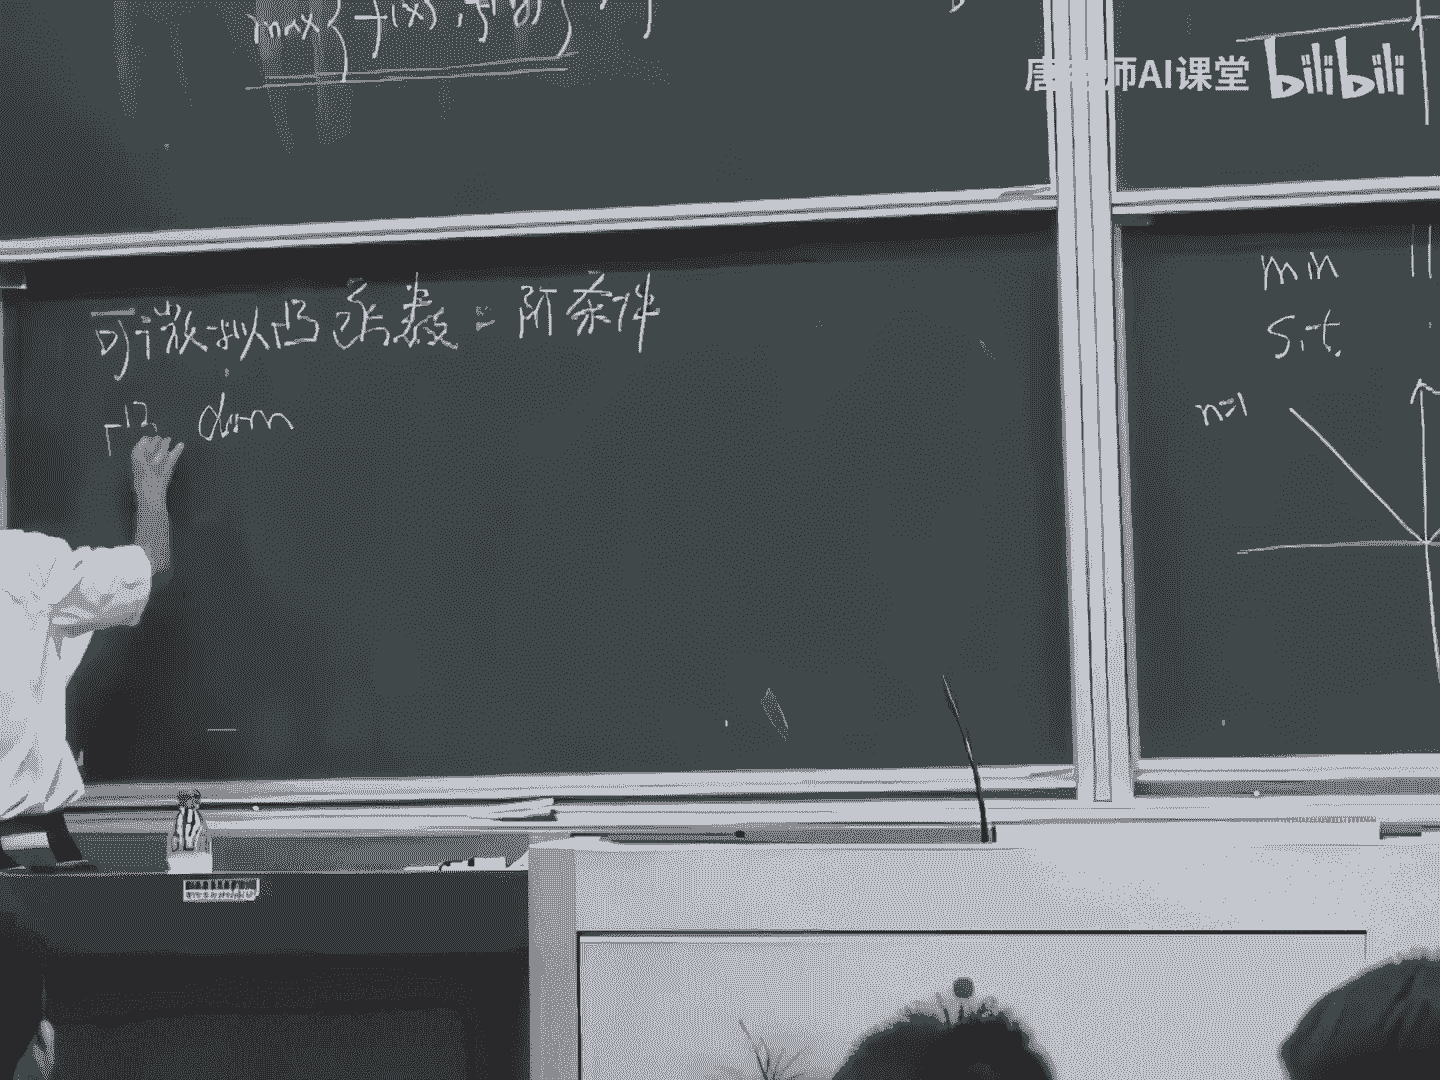 max{f(x), f(y)}
唐 师AI课堂 bilibili
可微拟凸函数二阶条件
dom
min ||
s.t.
n=1